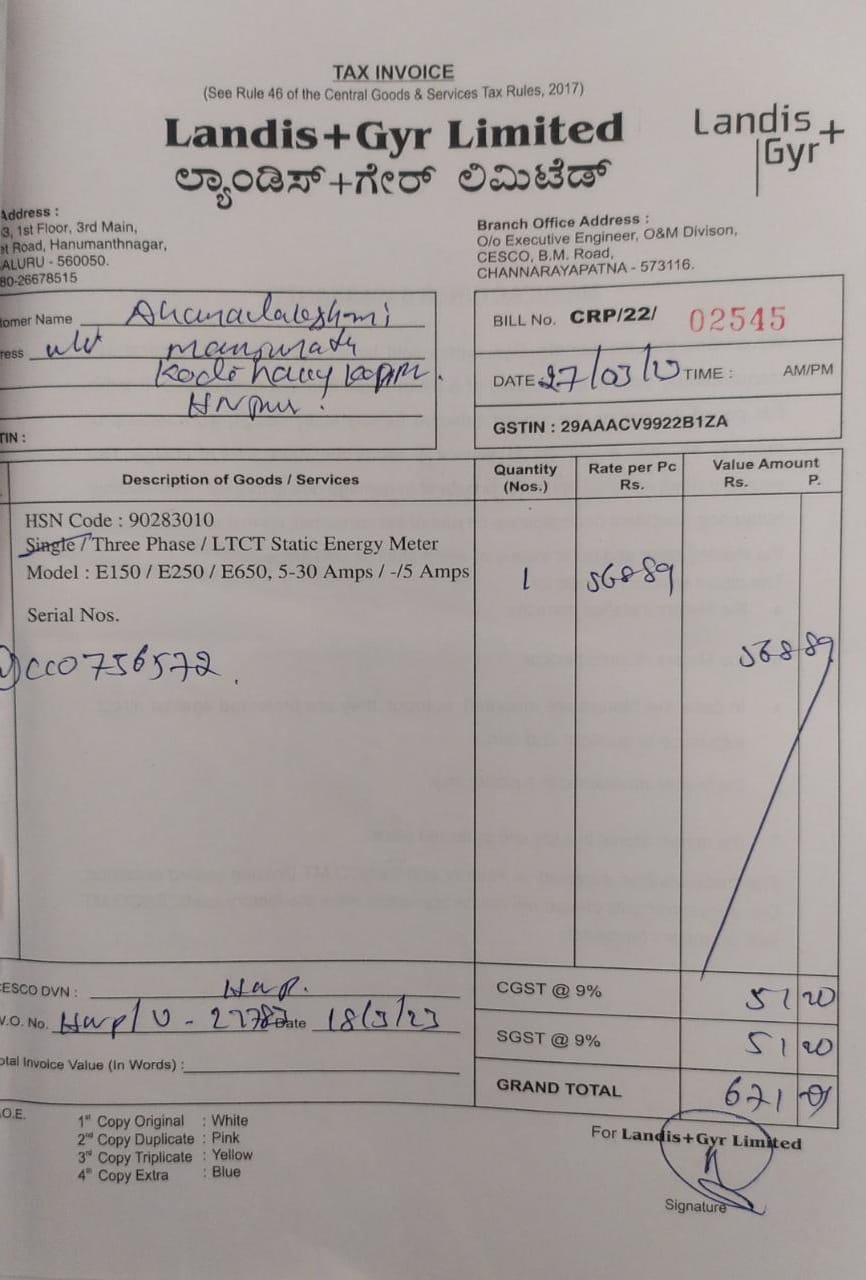 TAX INVOICE
(See Rule 46 of the Central Goods & Services Tax Rules, 2017)
Landis+Gyr Limited
ಲ್ಯಾಂಡಿಸ್+ಗೇರ್ ಲಿಮಿಟೆಡ್
Landis+
Gyr+
Address :
3, 1st Floor, 3rd Main,
Road, Hanumanthnagar,
ALURU - 560050.
80-26678515
Branch Office Address :
O/o Executive Engineer, O&M Divison,
CESCO, B.M. Road,
CHANNARAYAPATNA - 573116.
tomer Name
ress
TIN :
BILL No. CRP/22/ 02545
DATE 27/03/ TIME : AM/PM
GSTIN : 29AAACV9922B1ZA
Description of Goods / Services
Quantity (Nos.)
Rate per Pc Rs.
Value Amount Rs. P.
HSN Code : 90283010
Single / Three Phase / LTCT Static Energy Meter
Model : E150 / E250 / E650, 5-30 Amps / -/5 Amps 1 56889
Serial Nos.
56889
CC0756572.
CESCO DVN :
W.O. No. Date 18/3/23
otal Invoice Value (In Words) :
CGST @ 9% 51 20
SGST @ 9% 51 20
GRAND TOTAL 671
.O.E.
1st Copy Original : White
2nd Copy Duplicate : Pink
3rd Copy Triplicate : Yellow
4th Copy Extra : Blue
For Landis+Gyr Limited
Signature